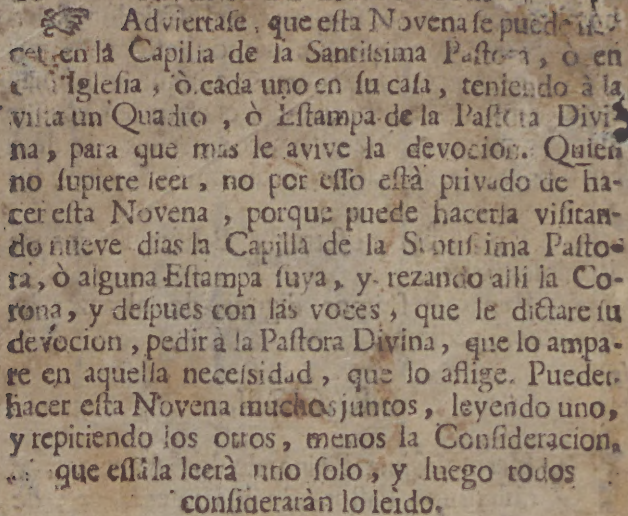 Adviertase, que esta Novena se puede ha-
cer en la Capilla de la Santissima Pastora, ò en
Iglesia, ò cada uno en su casa, teniendo à la
vista un Quadro, ò Estampa de la Pastora Divi-
na, para que mas le avive la devocion. Quien
no supiere leer, no por esso està privado de ha-
cer esta Novena, porque puede hacerla visitan-
do nueve dias la Capilla de la Santissima Pasto-
ra, ò alguna Estampa suya, y rezando alli la Co-
rona, y despues con las voces, que le dictare su
devocion, pedir à la Pastora Divina, que lo ampa-
re en aquella necessidad, que lo aflige. Pueden
hacer esta Novena muchos juntos, leyendo uno,
y repitiendo los otros, menos la Consideracion,
que essa la leerà uno solo, y luego todos
consideraràn lo leìdo.